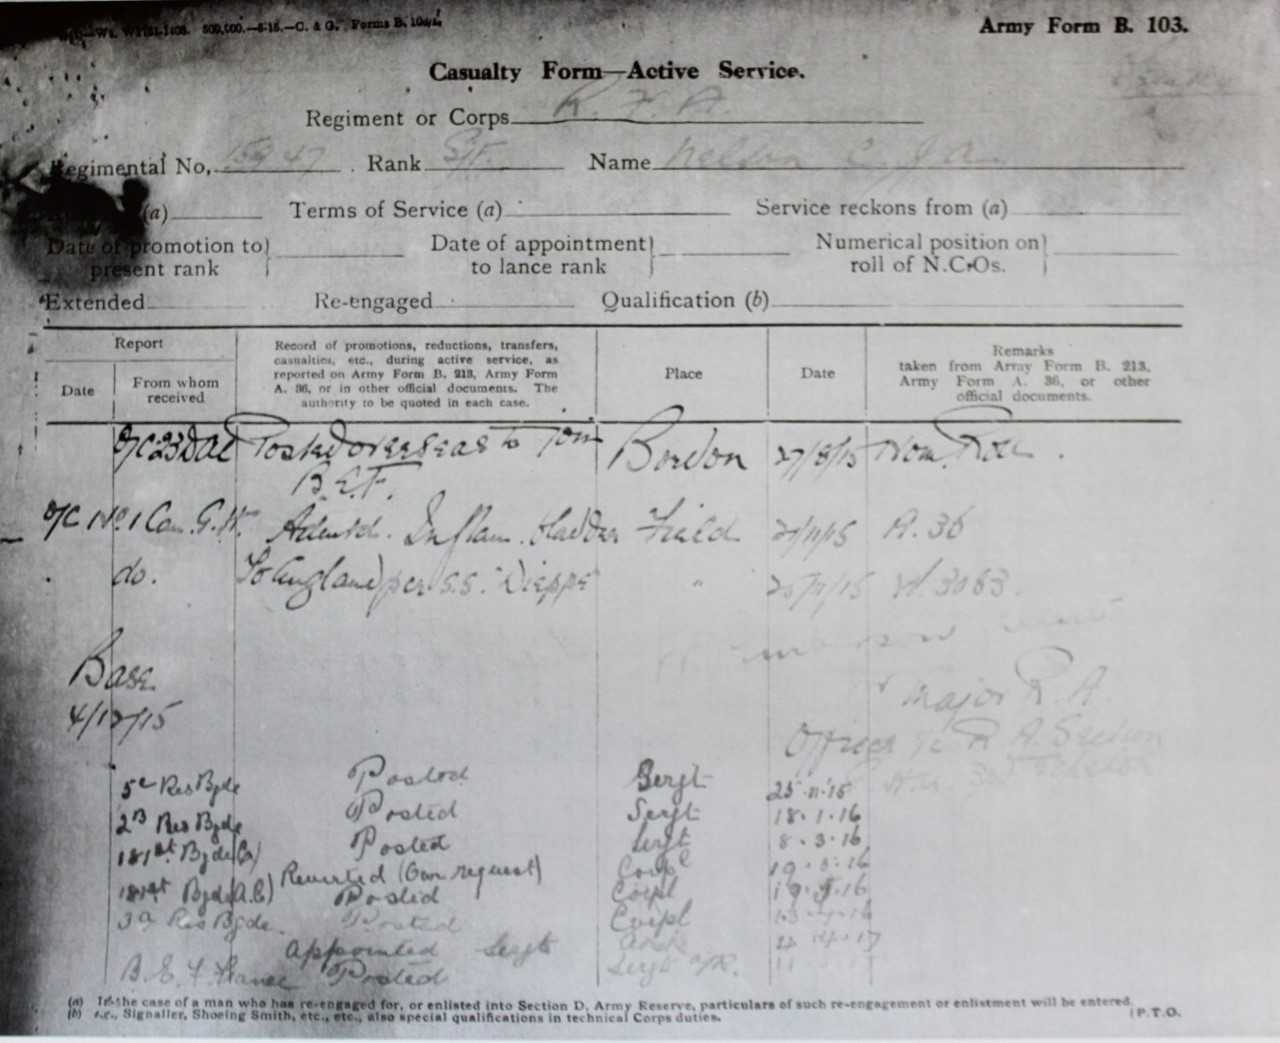 500,000.—5-15.—C. & G. Forms B.
Army Form B. 103.
Casualty Form—Active Service.
Regiment or Corps R. F. A.
Regimental No. Rank Sjt. Name Nelson C. J. A.
(a) Terms of Service (a) Service reckons from (a)
Date of promotion to present rank Date of appointment to lance rank Numerical position on roll of N.C.Os.
Extended Re-engaged Qualification (b)
Report
Date From whom received
Record of promotions, reductions, transfers, casualties, etc., during active service, as reported on Army Form B. 213, Army Form A. 36, or in other official documents. The authority to be quoted in each case.
Place
Date
Remarks taken from Army Form B. 213, Army Form A. 36, or other official documents.
O/C 23 DAC Posted overseas to Join Bordon 27/8/15 Nom. Roll.
B.E.F.
O/C No 1 Can. G.H. Admitd. Inflam. bladder Field /11/15 A. 36
do. To England per S.S. "Dieppe" " 25/11/15 W. 3083.
Base
4/12/15
Major R. A.
Officer i/c R. A. Section
5c Res Bgde Posted Sergt 25.11.15
2B Res Bgde Posted Sergt 18.1.16
181st Bgde Posted Sergt 8.3.16
Reverted (Own request) Corpl 19.5.16
181st Bgde (A.C) Posted Corpl 19.5.16
3a Res Bgde. Posted Corpl
Appointed Sergt 17
B. E. F. France Posted Sergt
(a) In the case of a man who has re-engaged for, or enlisted into Section D, Army Reserve, particulars of such re-engagement or enlistment will be entered.
(b) e.g., Signaller, Shoeing Smith, etc., etc., also special qualifications in technical Corps duties.
[P.T.O.